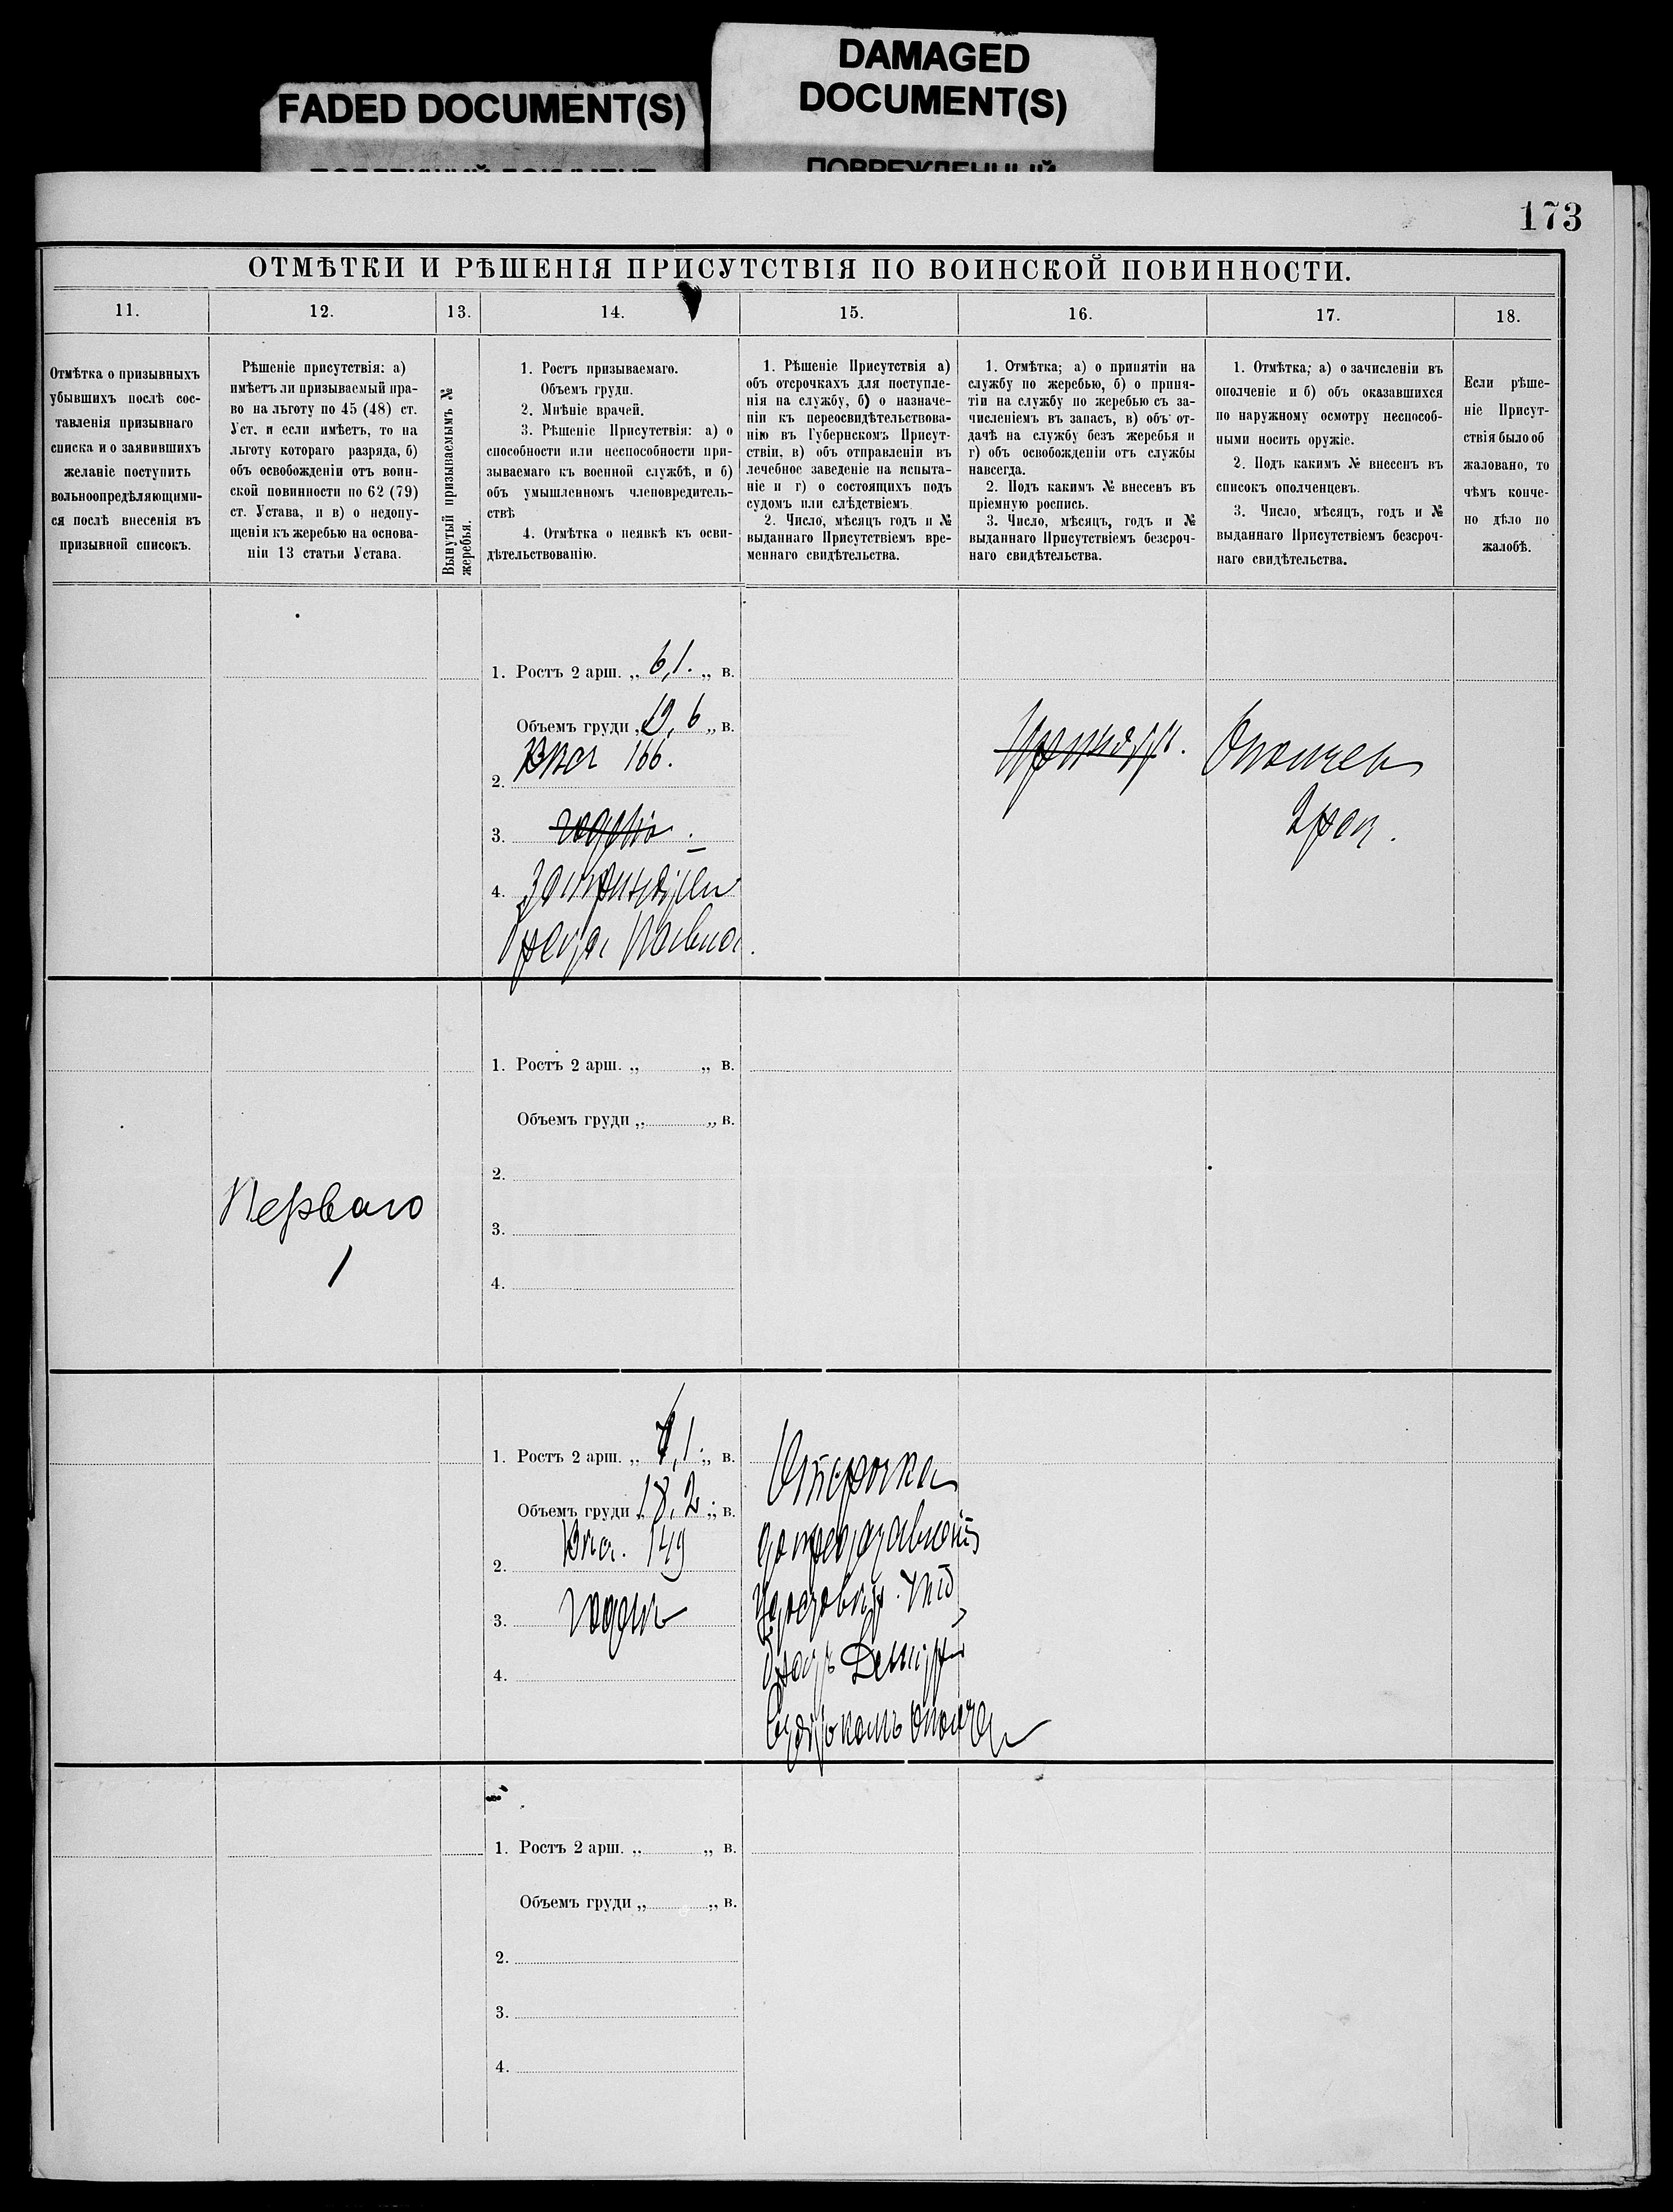 FADED DOCUMENT(S)
DAMAGED
DOCUMENT(S)
173
ОТМѢТКИ И РѢШЕНІЯ ПРИСУТСТВІЯ ПО ВОИНСКОЙ ПОВИННОСТИ.
11.
12.
13.
14.
15.
16.
17.
18.
Отмѣтка о призывныхъ
убывшихъ послѣ сос-
тавленія призывнаго
списка и о заявившихъ
желаніе поступить
вольноопредѣляющими-
ся послѣ внесенія въ
призывной списокъ.
Рѣшеніе присутствія: а)
имѣетъ ли призываемый пра-
во на льготу по 45 (48) ст.
Уст. и если имѣетъ, то на
льготу котораго разряда, б)
объ освобожденіи отъ воин-
ской повинности по 62 (79)
ст. Устава, и в) о недопу-
щеніи къ жеребью на основа-
ніи 13 статьи Устава.
Вынутый призываемымъ №
жеребья.
1. Ростъ призываемаго.
Объемъ груди.
2. Мнѣніе врачей.
3. Рѣшеніе Присутствія: а) о
способности или неспособности при-
зываемаго къ военной службѣ, и б)
объ умышленномъ членовредитель-
ствѣ
4. Отмѣтка о неявкѣ къ осви-
дѣтельствованію.
1. Рѣшеніе Присутствія а)
объ отсрочкахъ для поступле-
нія на службу, б) о назначе-
ніи къ переосвидѣтельствова-
нію въ Губернскомъ Присут-
ствіи, в) объ отправленіи въ
лечебное заведеніе на испыта-
ніе и г) о состоящихъ подъ
судомъ или слѣдствіемъ.
2. Число, мѣсяцъ годъ и №
выданнаго Присутствіемъ вре-
меннаго свидѣтельства.
1. Отмѣтка; а) о принятіи на
службу по жеребью, б) о приня-
тіи на службу по жеребью съ за-
численіемъ въ запасъ, в) объ от-
дачѣ на службу безъ жеребья и
г) объ освобожденіи отъ службы
навсегда.
2. Подъ какимъ № внесенъ въ
пріемную роспись.
3. Число, мѣсяцъ, годъ и №
выданнаго Присутствіемъ безсроч-
наго свидѣтельства.
1. Отмѣтка; а) о зачисленіи въ
ополченіе и б) объ оказавшихся
по наружному осмотру неспособ-
ными носить оружіе.
2. Подъ какимъ № внесенъ въ
списокъ ополченцевъ.
3. Число, мѣсяцъ, годъ и №
выданнаго Присутствіемъ безсроч-
наго свидѣтельства.
Если рѣше-
ніе Присут-
ствія было об
жаловано, то
чѣмъ конче-
но дѣло по
жалобѣ.
1. Ростъ 2 арш. „ 6,1. „ в.
Объемъ груди „ „ в.
2. 166.
3. годенъ
4.
Ополчен
1. Ростъ 2 арш. „ „ в.
Объемъ груди „ „ в.
2.
3.
4.
Перваго
1
1. Ростъ 2 арш. „ 4,1 „ в.
Объемъ груди „ 18,2 „ в.
2. 149
3. годенъ
4.
Отсрочка
1. Ростъ 2 арш. „ „ в.
Объемъ груди „ „ в.
2.
3.
4.